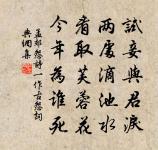 試妾與君淚
兩處滴池水
看取芙蓉花
今年為誰死
孟郊怨詩一作古怨詞
集